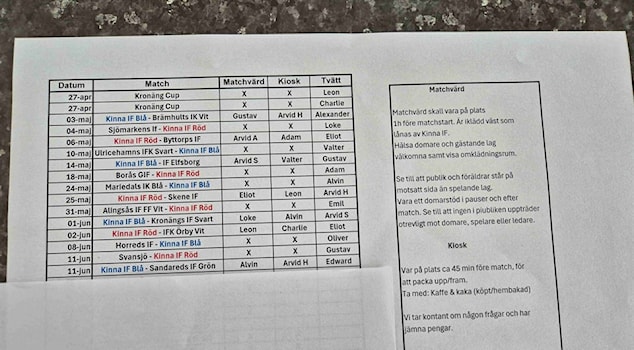 Datum Match Matchvärd Kiosk Tvätt
27-apr Kronäng Cup X X Leon
27-apr Kronäng Cup X X Charlie
03-maj Kinna IF Blå - Brämhults IK Vit Gustav Arvid H Alexander
04-maj Sjömarkens IF - Kinna IF Röd X X Loke
06-maj Kinna IF Röd - Byttorps IF Arvid A Adam Eliot
10-maj Ulricehamns IFK Svart - Kinna IF Blå X X Valter
14-maj Kinna IF Blå - IF Elfsborg Arvid S Valter Gustav
18-maj Borås GIF - Kinna IF Röd X X Adam
24-maj Mariedals IK Blå - Kinna IF Blå X X Alvin
25-maj Kinna IF Röd - Skene IF Eliot Leon Arvid H
31-maj Alingsås IF FF Vit - Kinna IF Röd X X Emil
01-jun Kinna IF Blå - Kronängs IF Svart Loke Alvin Arvid S
02-jun Kinna IF Röd - IFK Örby Vit Leon Charlie Eliot
08-jun Horreds IF - Kinna IF Blå X X Oliver
11-jun Svansjö - Kinna IF Röd X X Gustav
11-jun Kinna IF Blå - Sandareds IF Grön Alvin Arvid H Edward
Matchvärd
Matchvärd skall vara på plats
1h före matchstart. Är iklädd väst som
lånas av Kinna IF.
Hälsa domare och gästande lag
välkomna samt visa omklädningsrum.
Se till att publik och föräldrar står på
motsatt sida än spelande lag.
Vara ett domarstöd i pauser och efter
match. Se till att ingen i piubliken uppträder
otrevligt mot domare, spelare eller ledare.
Kiosk
Var på plats ca 45 min före match, för
att packa upp/fram.
Ta med: Kaffe & kaka (köpt/hembakad)
Vi tar kontant om någon frågar och har
jämna pengar.